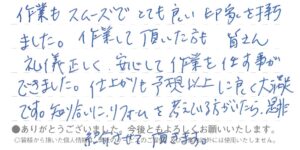 作業もスムーズでとても良い印象を持ち
ました。作業して頂いた方も 皆さん
礼儀正しく、安心して作業を任す事が
できました。仕上がりも予想以上に良く大満足
です。知り合いに、リフォームを考えている方がいたら、是非
●ありがとうございました。今後ともよろしくお願いします。
させて頂きます。